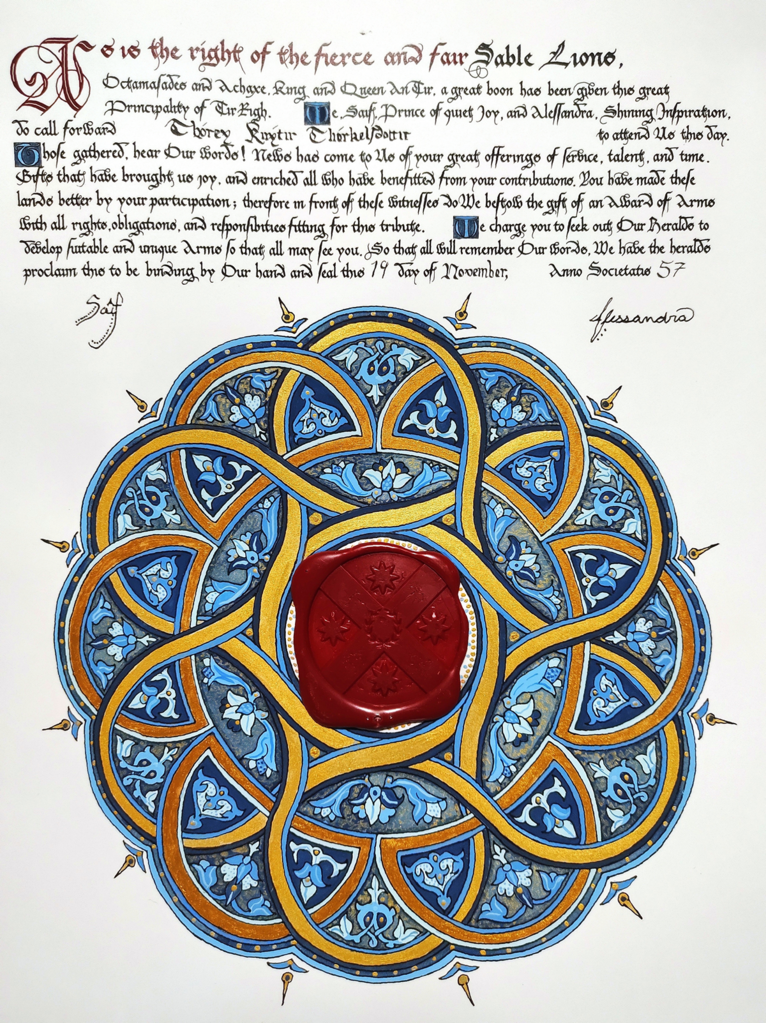 As is the right of the fierce and fair Sable Lions,
Octamasades and Achaxe, King and Queen An Tir, a great boon has been given this great
Principality of Tir Righ. We, Saif, Prince of quiet Joy, and Alessandra, Shining Inspiration,
do call forward Thorey Kuxtir Thorkelsdottir to attend Us this day.
Those gathered, hear Our words! News has come to Us of your great offerings of service, talent, and time.
Gifts that have brought us joy, and enriched all who have benefitted from your contributions. You have made these
lands better by your participation; therefore in front of these witnesses do We bestow the gift of an Award of Arms
with all rights, obligations, and responsibities fitting for this tribute. We charge you to seek out Our Heralds to
develop suitable and unique Arms so that all may see you. So that all will remember Our words, We have the heralds
proclaim this to be binding by Our hand and seal this 19 day of November, Anno Societatis 57
Saif Alessandra